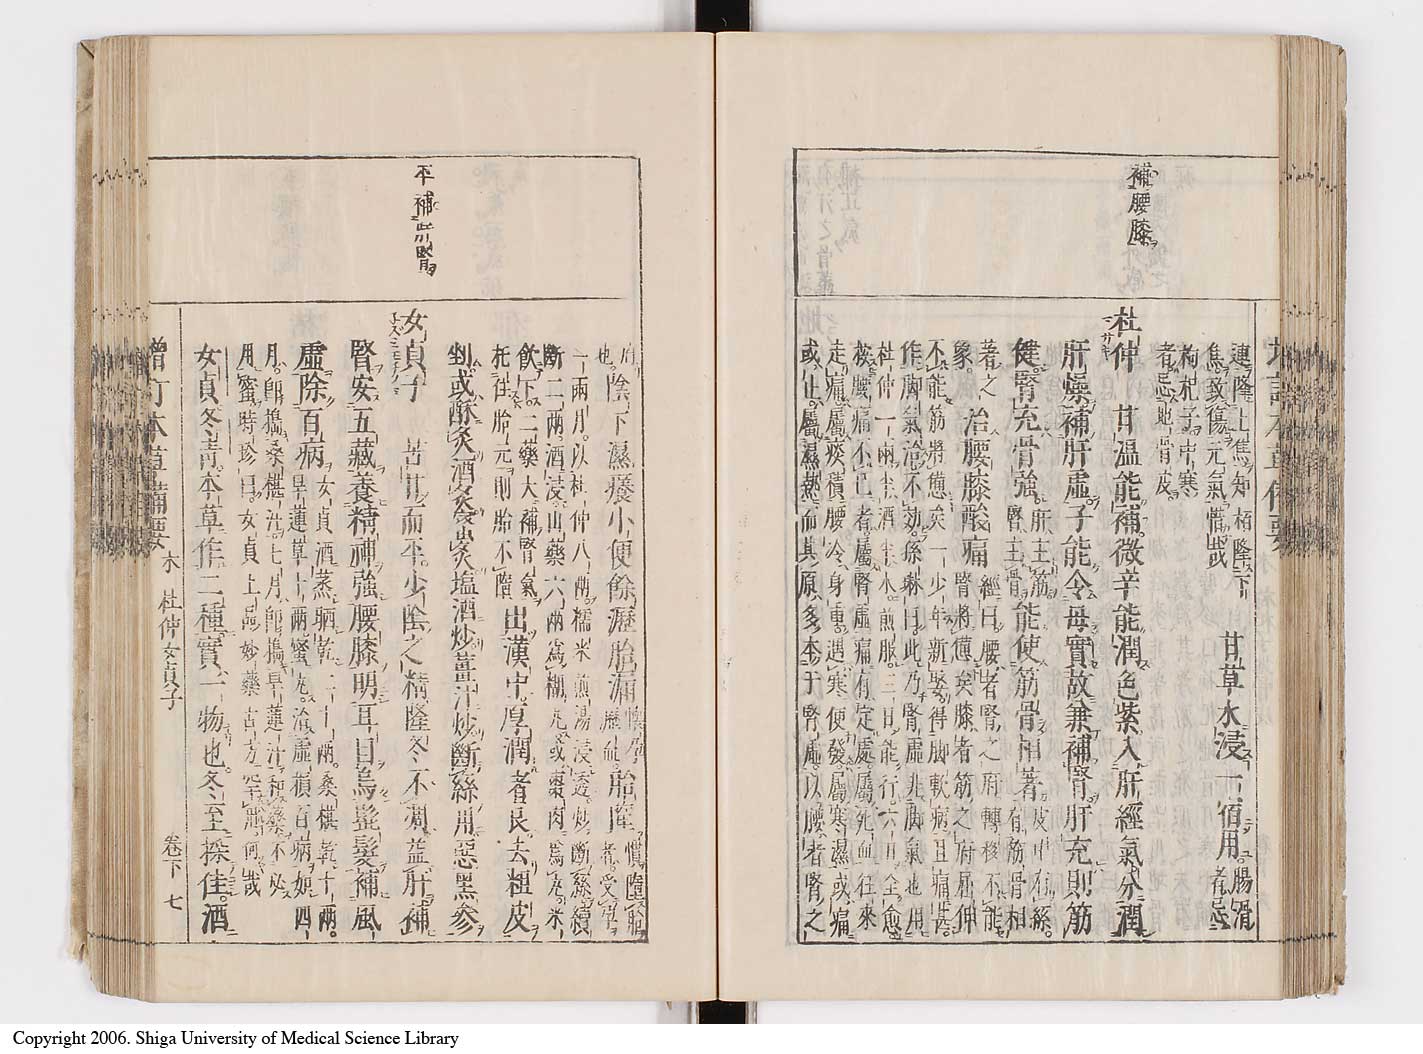 補腰膝
連隆上焦知栢隆下
焦致傷元氣惜哉
甘草水浸一宿用腸滑者忌
枸杞子中寒
者忌地骨皮
杜仲 甘溫能補微辛能潤色紫入肝經氣分潤
肝燥補肝虛子能令母實故兼補腎肝充則筋
健腎充骨強肝主筋腎主骨能使筋骨相著皮中有絲有筋骨相
著之象治腰膝酸痛經曰腰者腎之府轉移不能腎將憊矣膝者筋之府屈伸
不能筋將憊矣一少年新娶得脚軟病且痛甚
作脚氣治不効孫琳曰此乃腎虛非脚氣也用
杜仲一兩半酒半水煎服三日能行六日全愈
按腰痛不已者屬腎虛痛有定處屬死血往來
走痛屬痰積腰冷身重遇寒便發屬寒濕或痛
或止屬濕熱而其原多本于腎虛以腰者腎之
府也陰下濕癢小便餘瀝胎漏懷孕瀝血胎墮慣墮胎者受孕
一兩月以杜仲八兩糯米煎湯浸透炒斷絲續
斷二兩酒浸山藥六兩爲糊丸或棗肉爲丸米
飲下二藥大補腎氣托住胎元則胎不墮出漢中厚潤者良去粗皮
剉或酥炙酒炙蜜炙塩酒炒薑汁炒斷絲用惡黑參
平補肝腎
女貞子 苦甘而平少陰之精隆冬不凋益肝補
腎安五藏養精神強腰膝明耳目烏髭髮補風
虛除百病女貞酒蒸晒乾二十兩桑椹乾十兩旱蓮草十兩蜜丸治虛損百病如四
月即搗桑椹汁七月即搗旱蓮汁和藥不必
用蜜時珍曰女貞上品妙藥古方罕用何哉
女貞冬青本草作二種實一物也冬至採佳酒
增訂本草備要 木 杜仲女貞子 卷下 七